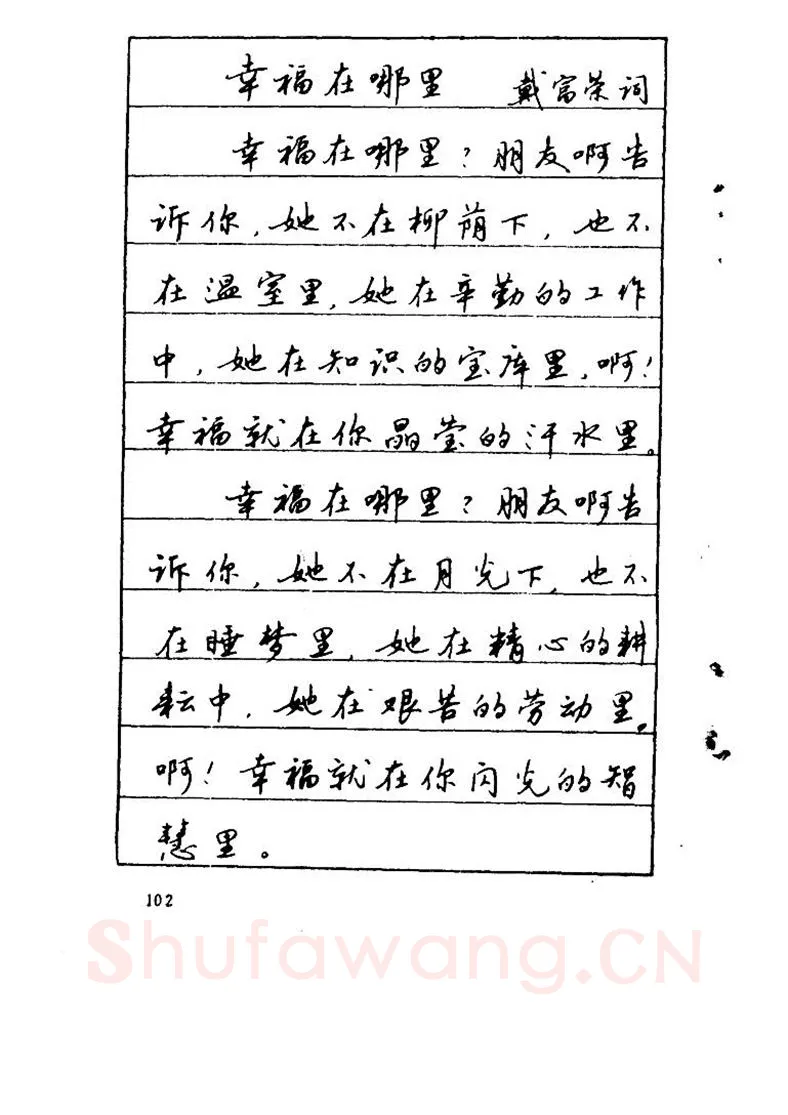 幸福在哪里 戴富荣词
幸福在哪里？朋友啊告
诉你，她不在柳荫下，也不
在温室里，她在辛勤的工作
中，她在知识的宝库里，啊！
幸福就在你晶莹的汗水里。
幸福在哪里？朋友啊告
诉你，她不在月光下，也不
在睡梦里，她在精心的耕
耘中，她在艰苦的劳动里。
啊！幸福就在你闪光的智
慧里。
102
Shufawang.CN